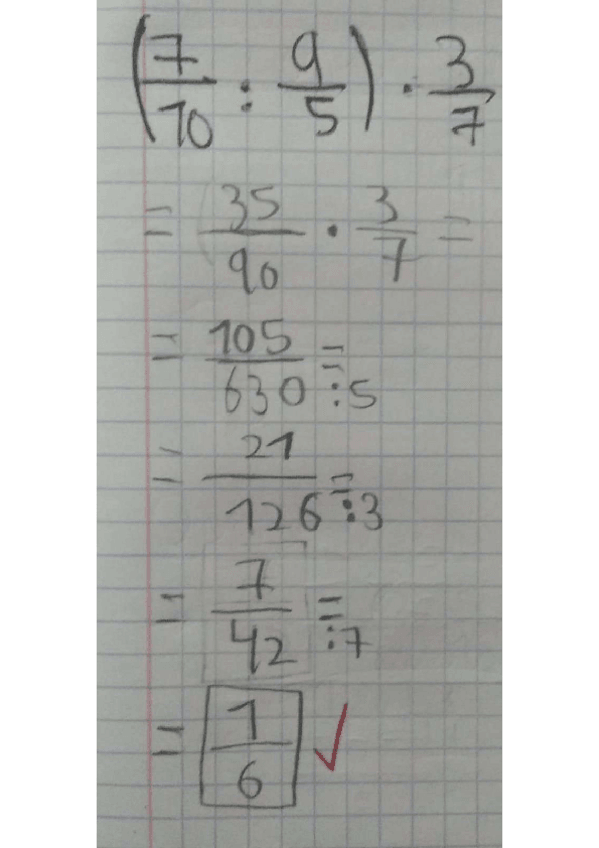 (7/10 : 9/5) · 3/7
= 35/90 · 3/7 =
= 105/630 = :5
= 21/126 = :3
= 7/42 = :7
= 1/6 ✓